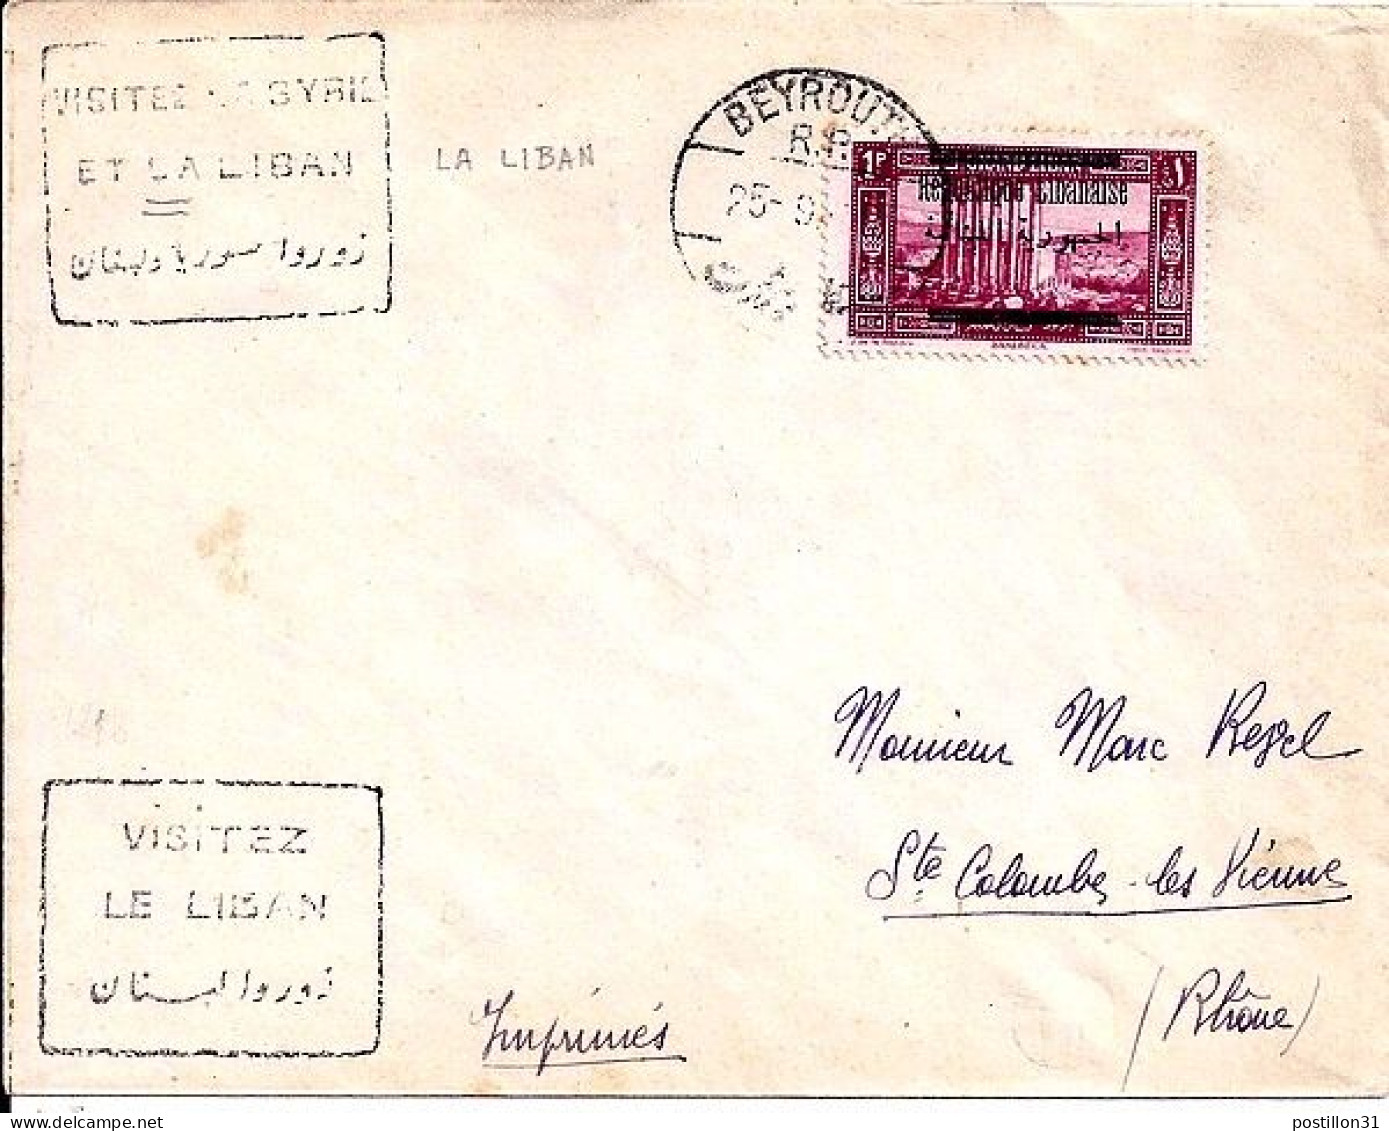 VISITEZ LA SYRIE
ET LA LIBAN
زوروا سوريا ولبنان
LA LIBAN
BEYROUTH
R.P.
25-9
بيروت
1P
١
République Libanaise
الجمهورية اللبنانية
Monsieur Marc Regel
Ste Colombe-les Vienne
(Rhône)
VISITEZ
LE LIBAN
زوروا لبنان
Imprimés
postillon31